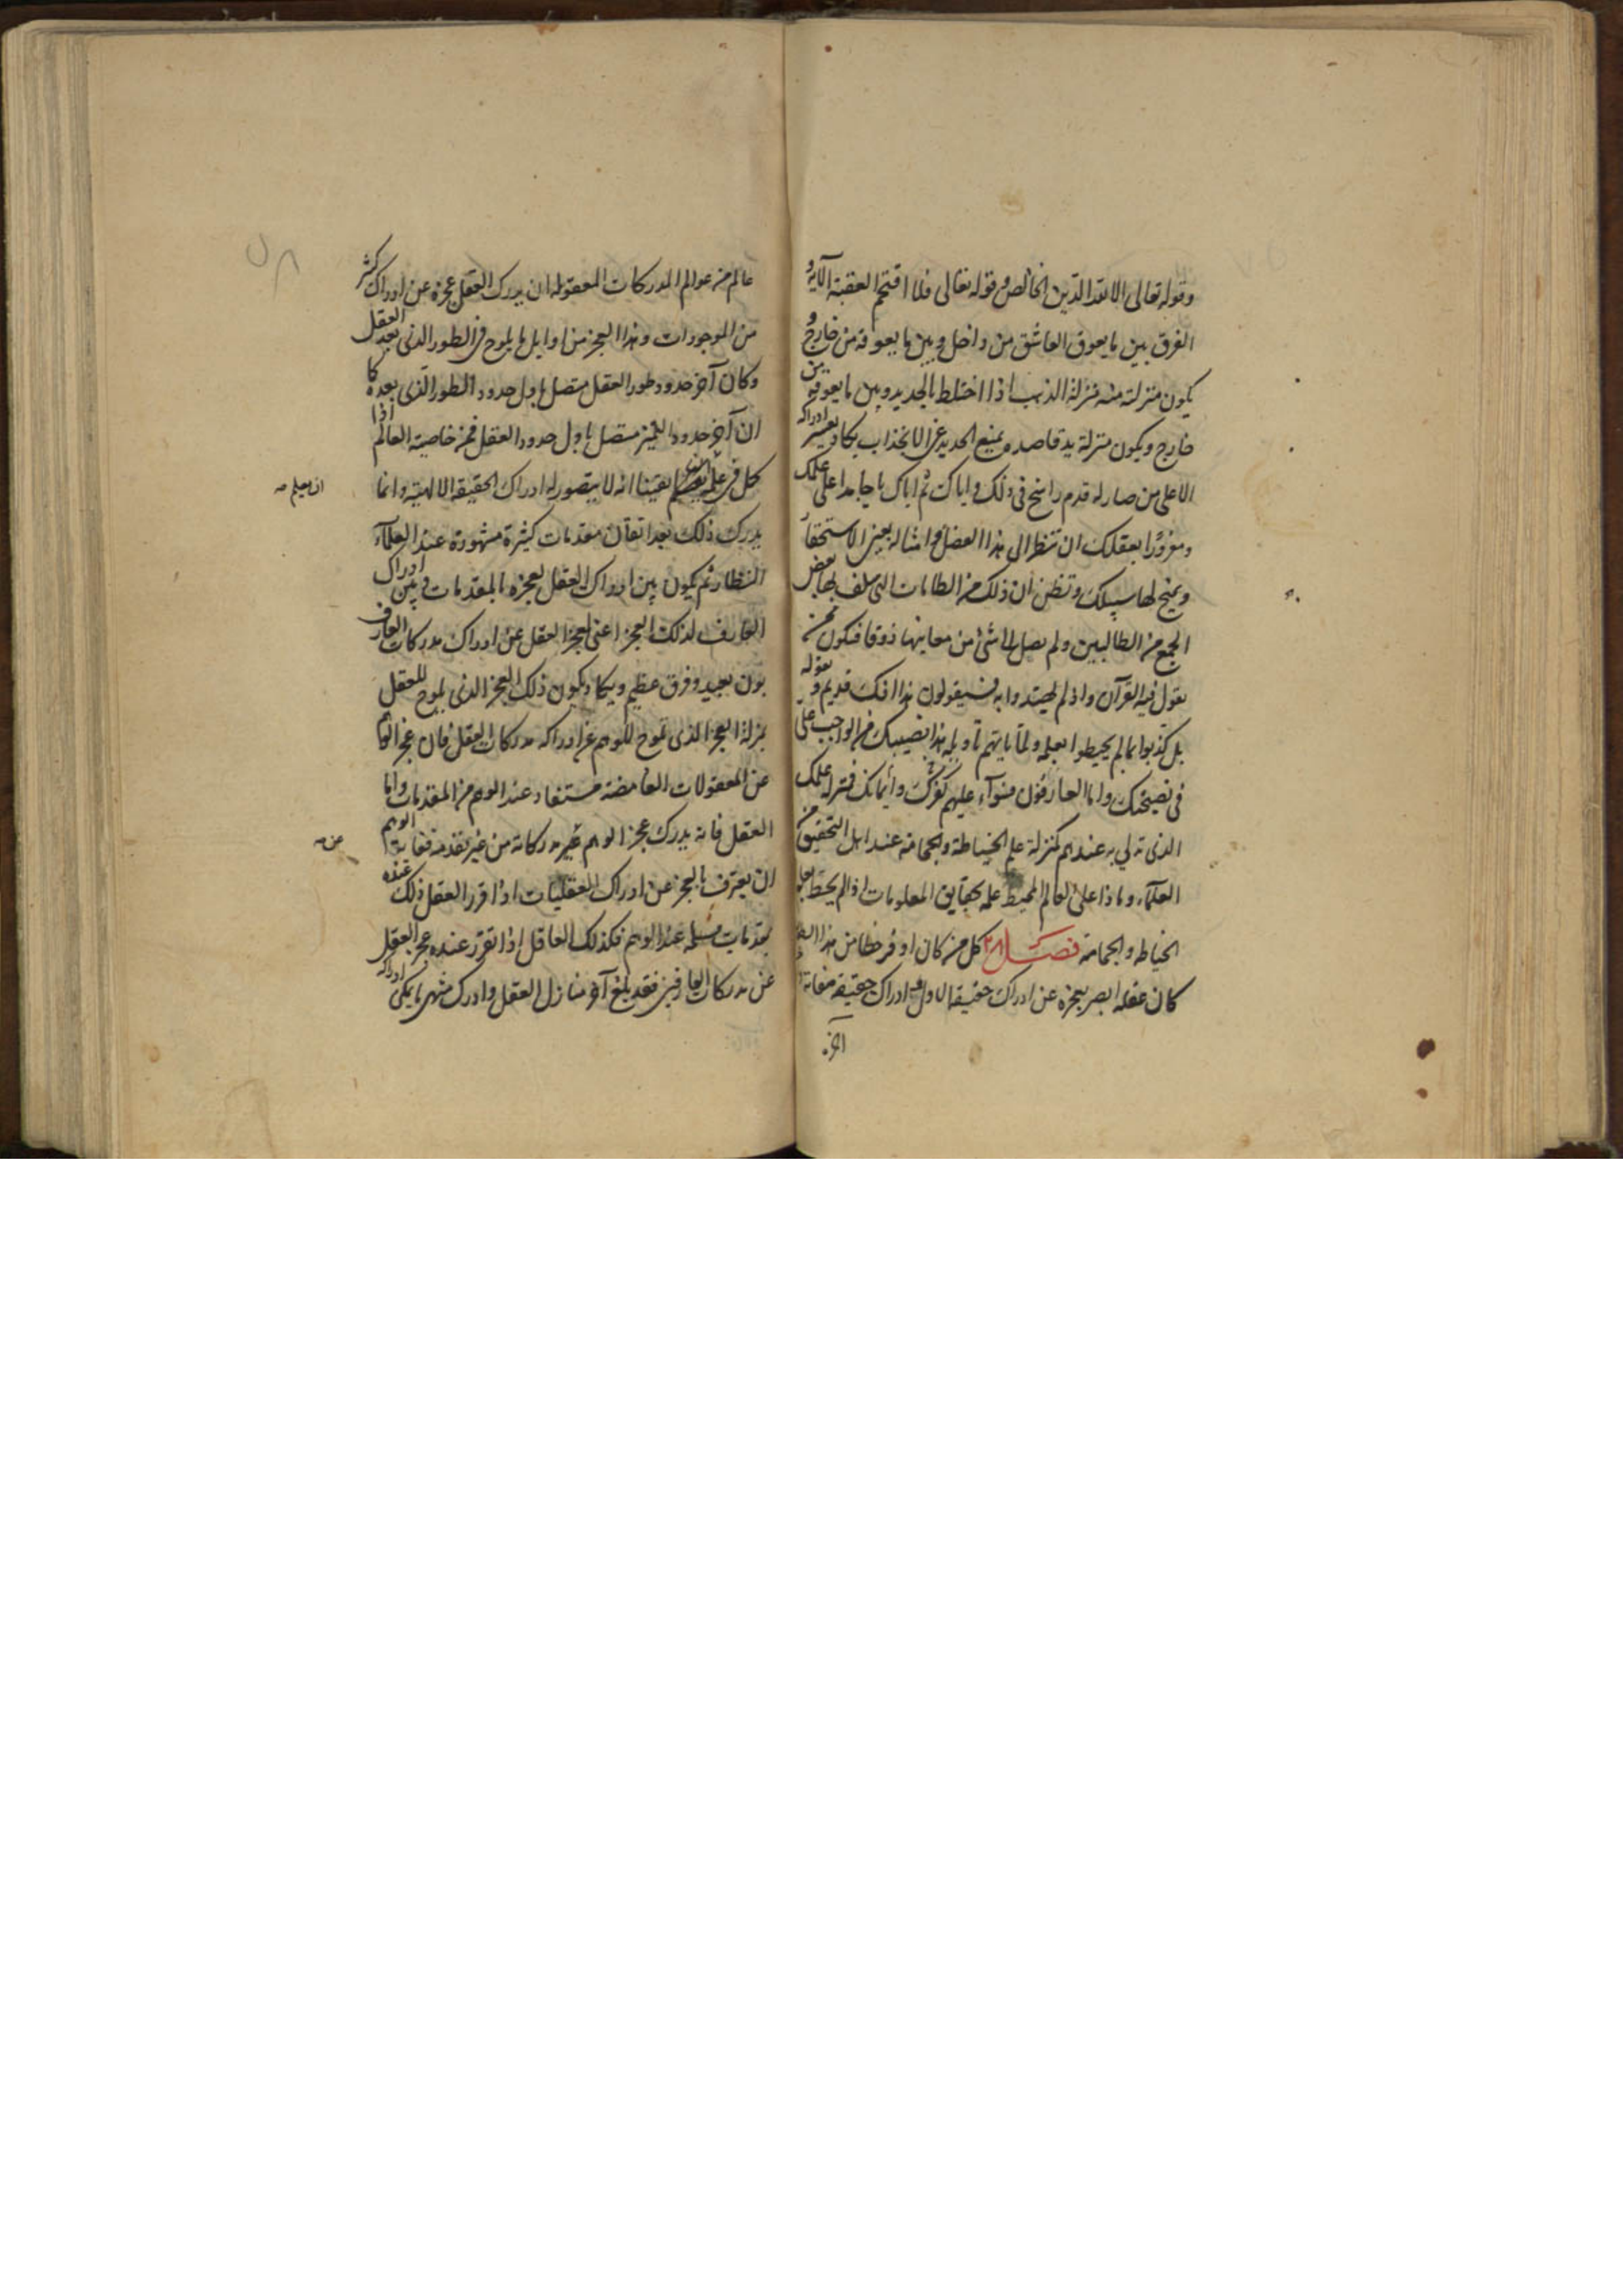 وقوله تعالى الا لله الدين الخالص وقوله تعالى فلا اقتحم العقبة الآية و
الفرق بين ما يعوق العاشق من داخل وبين ما يعوقه من خارج و
يكون منزلته منه منزلة الذهب اذا اختلط بالحديد وبين ما يعوقه من
خارج ويكون منزلة يد قاصد يمنع الحديد عن الانجذاب يكاد يعسر ادراكه
الا على من صار له قدم راسخ في ذلك واياك ثم اياك يا جامدا على علمك
ومغرورا بعقلك ان تنظر الى هذا الفصل وامثاله بعين الاستحقار
سبيلك وتظن ان ذلك من الطامات التى سلف بها بعض
الجمع من الطالبين ولم يصل الى شئ من معانيها ذوقا فتكون ممن
يقول فيه القرآن واذ لم يهتدوا به فسيقولون هذا افك قديم و بقوله
بل كذبوا بما لم يحيطوا بعلمه ولما ياتهم تأويله هذا نصيبك من الواجب على
في نصيحتك واما العارفون فسواء عليهم كفرك وايمانك فنزلة علمك
الذى تدلي به عندهم كمنزلة علم الخياطة والحجامة عند اهل التحقيق من
العلماء وماذا على العالم المحيط علمه بحقايق المعلومات اذا لم يحط بعلم
الخياطه والحجامة فصل كل من كان اوفر حظا من هذا
كان عقله ابصر بعجزه عن ادراك حقيقة الاول ادراك حقيقة صفاته
آخر
عالم من عوالم المدركات المعقولة ان يدرك العقل عجزه عن ادراك كثير
من الموجودات وهذا العجز من اوايل ما يلوح في الطور الذى بعد العقل
وكان آخر حدود طور العقل متصل باول حدود الطور الذى بعده كما
ان آخر حدود التميز متصل باول حدود العقل فمن خاصية العالم اذا
كمل في علمه يقينا انه لا يتصور له ادراك الحقيقة الالهية وانما
ان يعلم صح
يدرك ذلك بعد اتقان مقدمات كثيرة مشهورة عند العلماء
النظار ثم يكون بين ادراك العقل لعجزه بالمقدمات وبين ادراك
العارف لذلك العجز اعنى لعجز العقل عن ادراك مدركات العارف
بون بعيد وفرق عظيم ويكاد يكون ذلك العجز الذى يلوح للعقل
بمنزلة العجز الذى يلوح للوهم عن ادراكه مدركات العقل فان عجز الوهم
عن المعقولات الغامضة مستفاد عند الوهم من المقدمات واما
العقل فانه يدرك عجز الوهم عن مدركاته من غير مقدمة الوهم
عن صح
ان يعترف بالعجز عن ادراك العقليات اذا قرر العقل ذلك عنده
بمقدمات مسلمة عند الوهم فكذلك العاقل اذا تقرر عنده عجز العقل
عن مدركات العارفين فقد بلغ آخر منازل العقل وادرك منتهى ما يمكن ادراكه